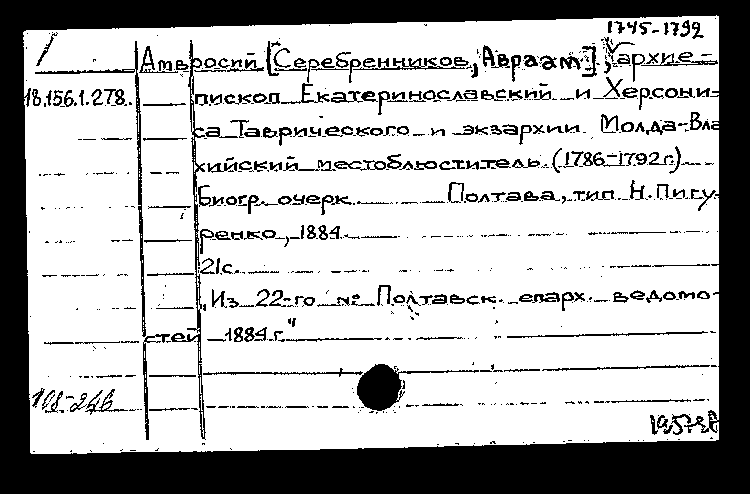 1745-1792
Амвросий [Серебренников, Авраам], архие-
18.156.1.278. пископ Екатеринославский и Херсони-
са Таврического и экзархии Молда-Вла
хийский местоблюститель (1786-1792г.)
Биогр. очерк Полтава, тип. Н. Пигу-
ренко, 1884
21с.
„Из 22-го № Полтавск. епарх. ведомо-
стей 1884 г."